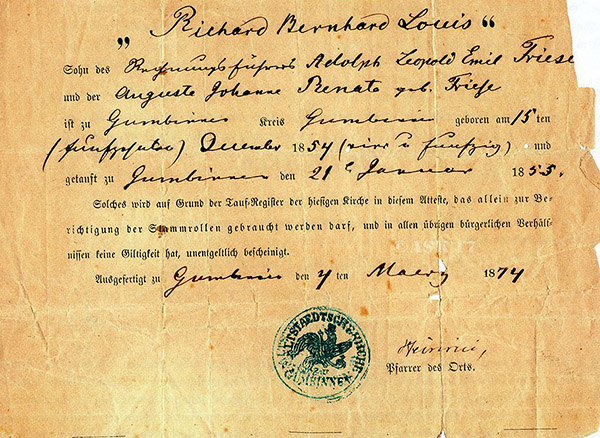 „ Richard Bernhard Louis “
Sohn des Rechnungsführers Adolph Leopold Emil Friese
und der Auguste Johanne Renate geb. Friese
ist zu Gumbinnen Kreis Gumbinnen geboren am 15 ten
(fünfzehnten) December 1854 (vier u fünfzig) und
getauft zu Gumbinnen den 21 Januar 1855.
Solches wird auf Grund der Tauf-Register der hiesigen Kirche in diesem Atteste, das allein zur Be-
richtigung der Stammrollen gebraucht werden darf, und in allen übrigen bürgerlichen Verhält-
nissen keine Giltigkeit hat, unentgeltlich bescheinigt.
Ausgefertigt zu Gumbinnen den 4 ten Maerz 1874
ALTSTAEDTSCHE KIRCHE
ZU
GUMBINNEN
Heinrici,
Pfarrer des Orts.